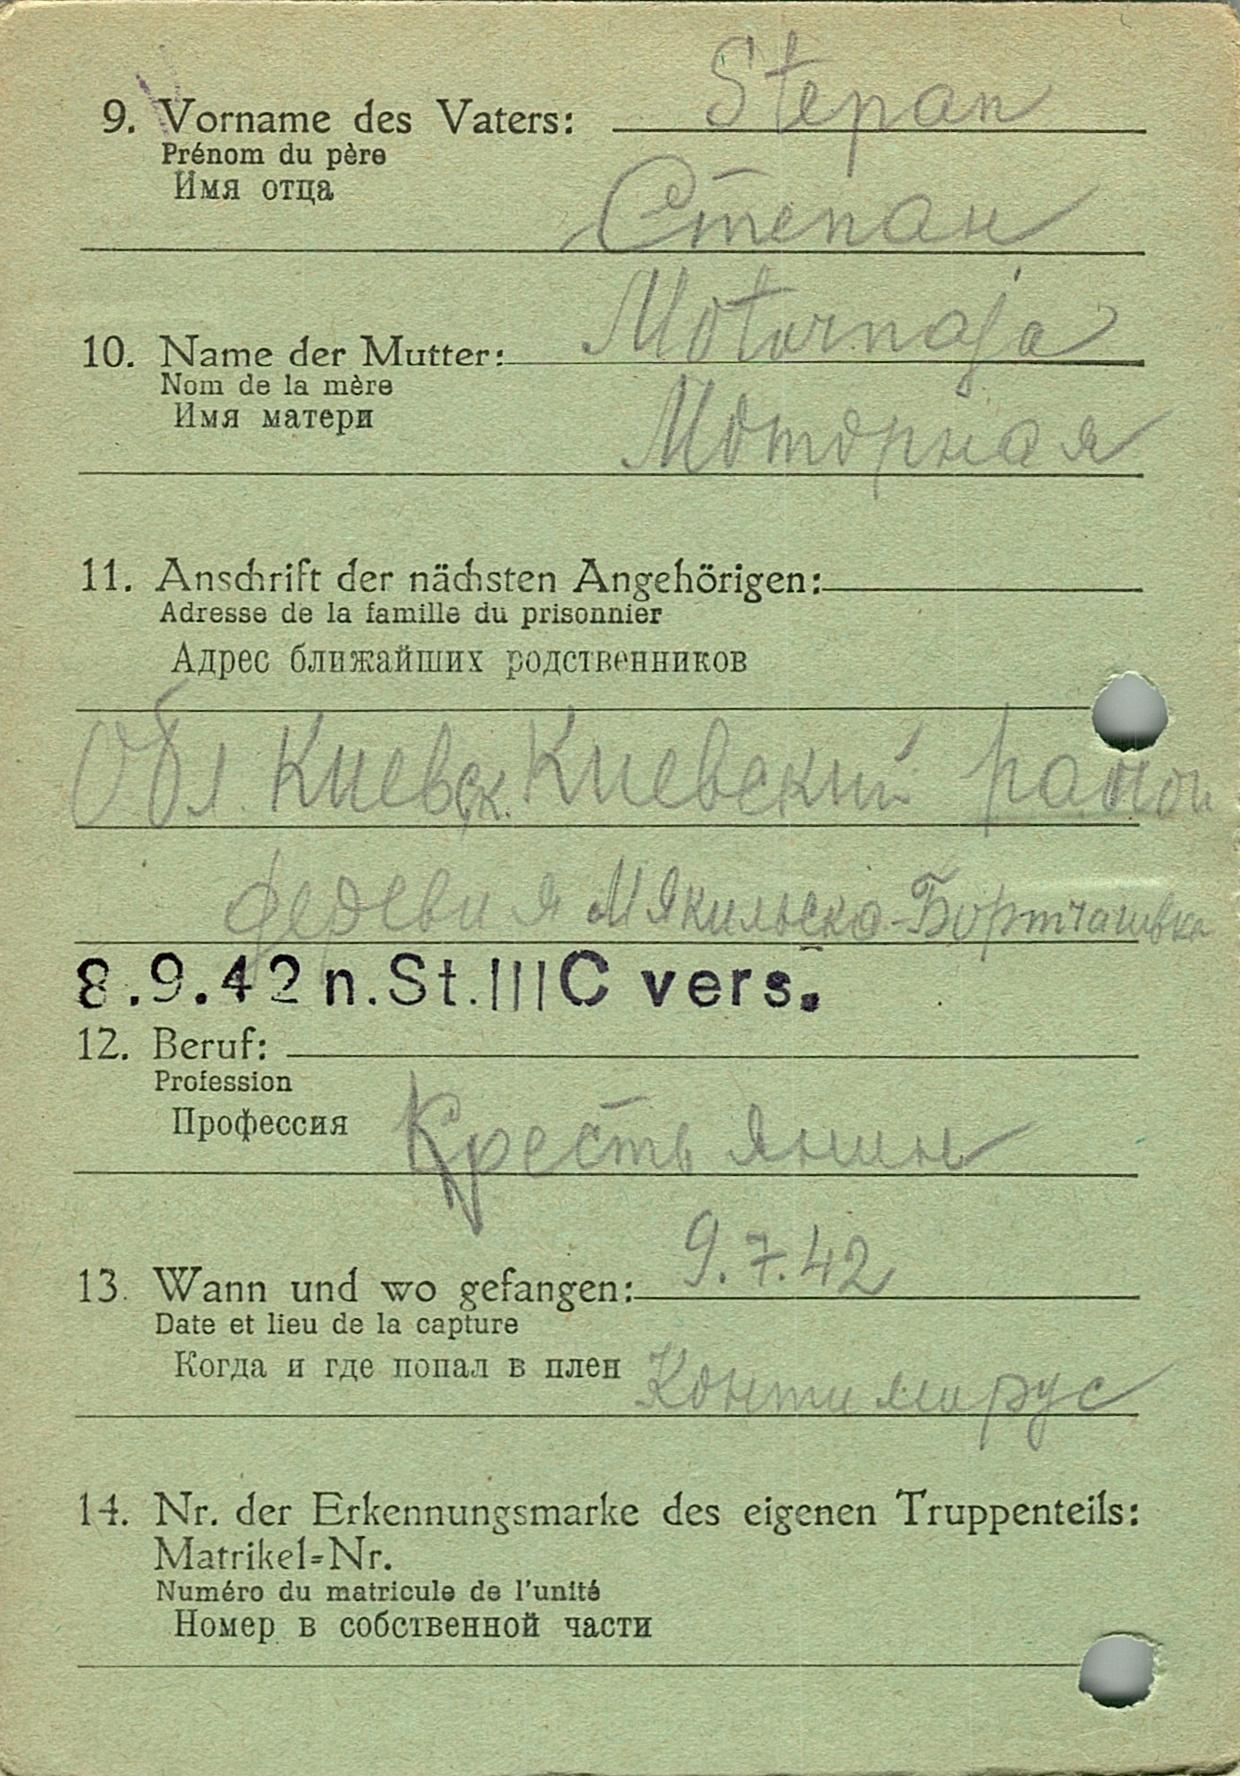 9. Vorname des Vaters: Stepan
Prénom du père
Имя отца
Степан
10. Name der Mutter: Motornaja
Nom de la mère
Имя матери
Моторная
11. Anschrift der nächsten Angehörigen:
Adresse de la famille du prisonnier
Адрес ближайших родственников
Обл. Киевск. Киевский район
деревня Мякильска-Бортчашвка
8.9.42 n.St.IIIC vers.
12. Beruf:
Profession
Профессия
Крестьянин
13. Wann und wo gefangen: 9.7.42
Date et lieu de la capture
Когда и где попал в плен
Контимирус
14. Nr. der Erkennungsmarke des eigenen Truppenteils:
Matrikel=Nr.
Numéro du matricule de l'unité
Номер в собственной части